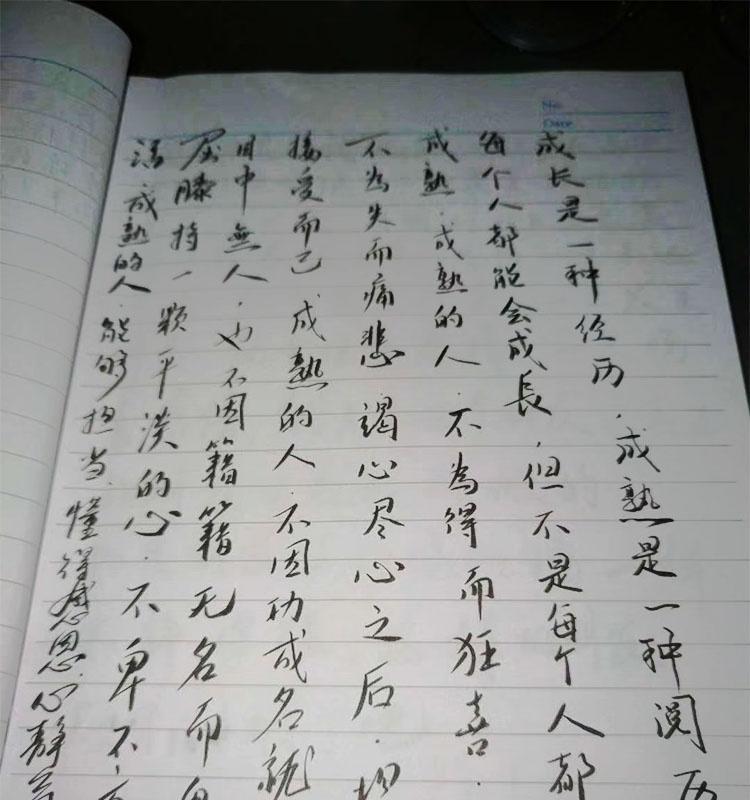 No.
Date
成长是一种经历.成熟是一种阅历
每个人都能会成長.但不是每个人都
成熟.成熟的人.不為得而狂喜.
不為失而痛悲 竭心尽心之后.坦
接受而已 成熟的人.不因功成名就
目中無人.也不因籍籍无名而卑
屈膝持一颗平淡的心.不卑不
活成熟的人.能够担当.懂得感恩.心静